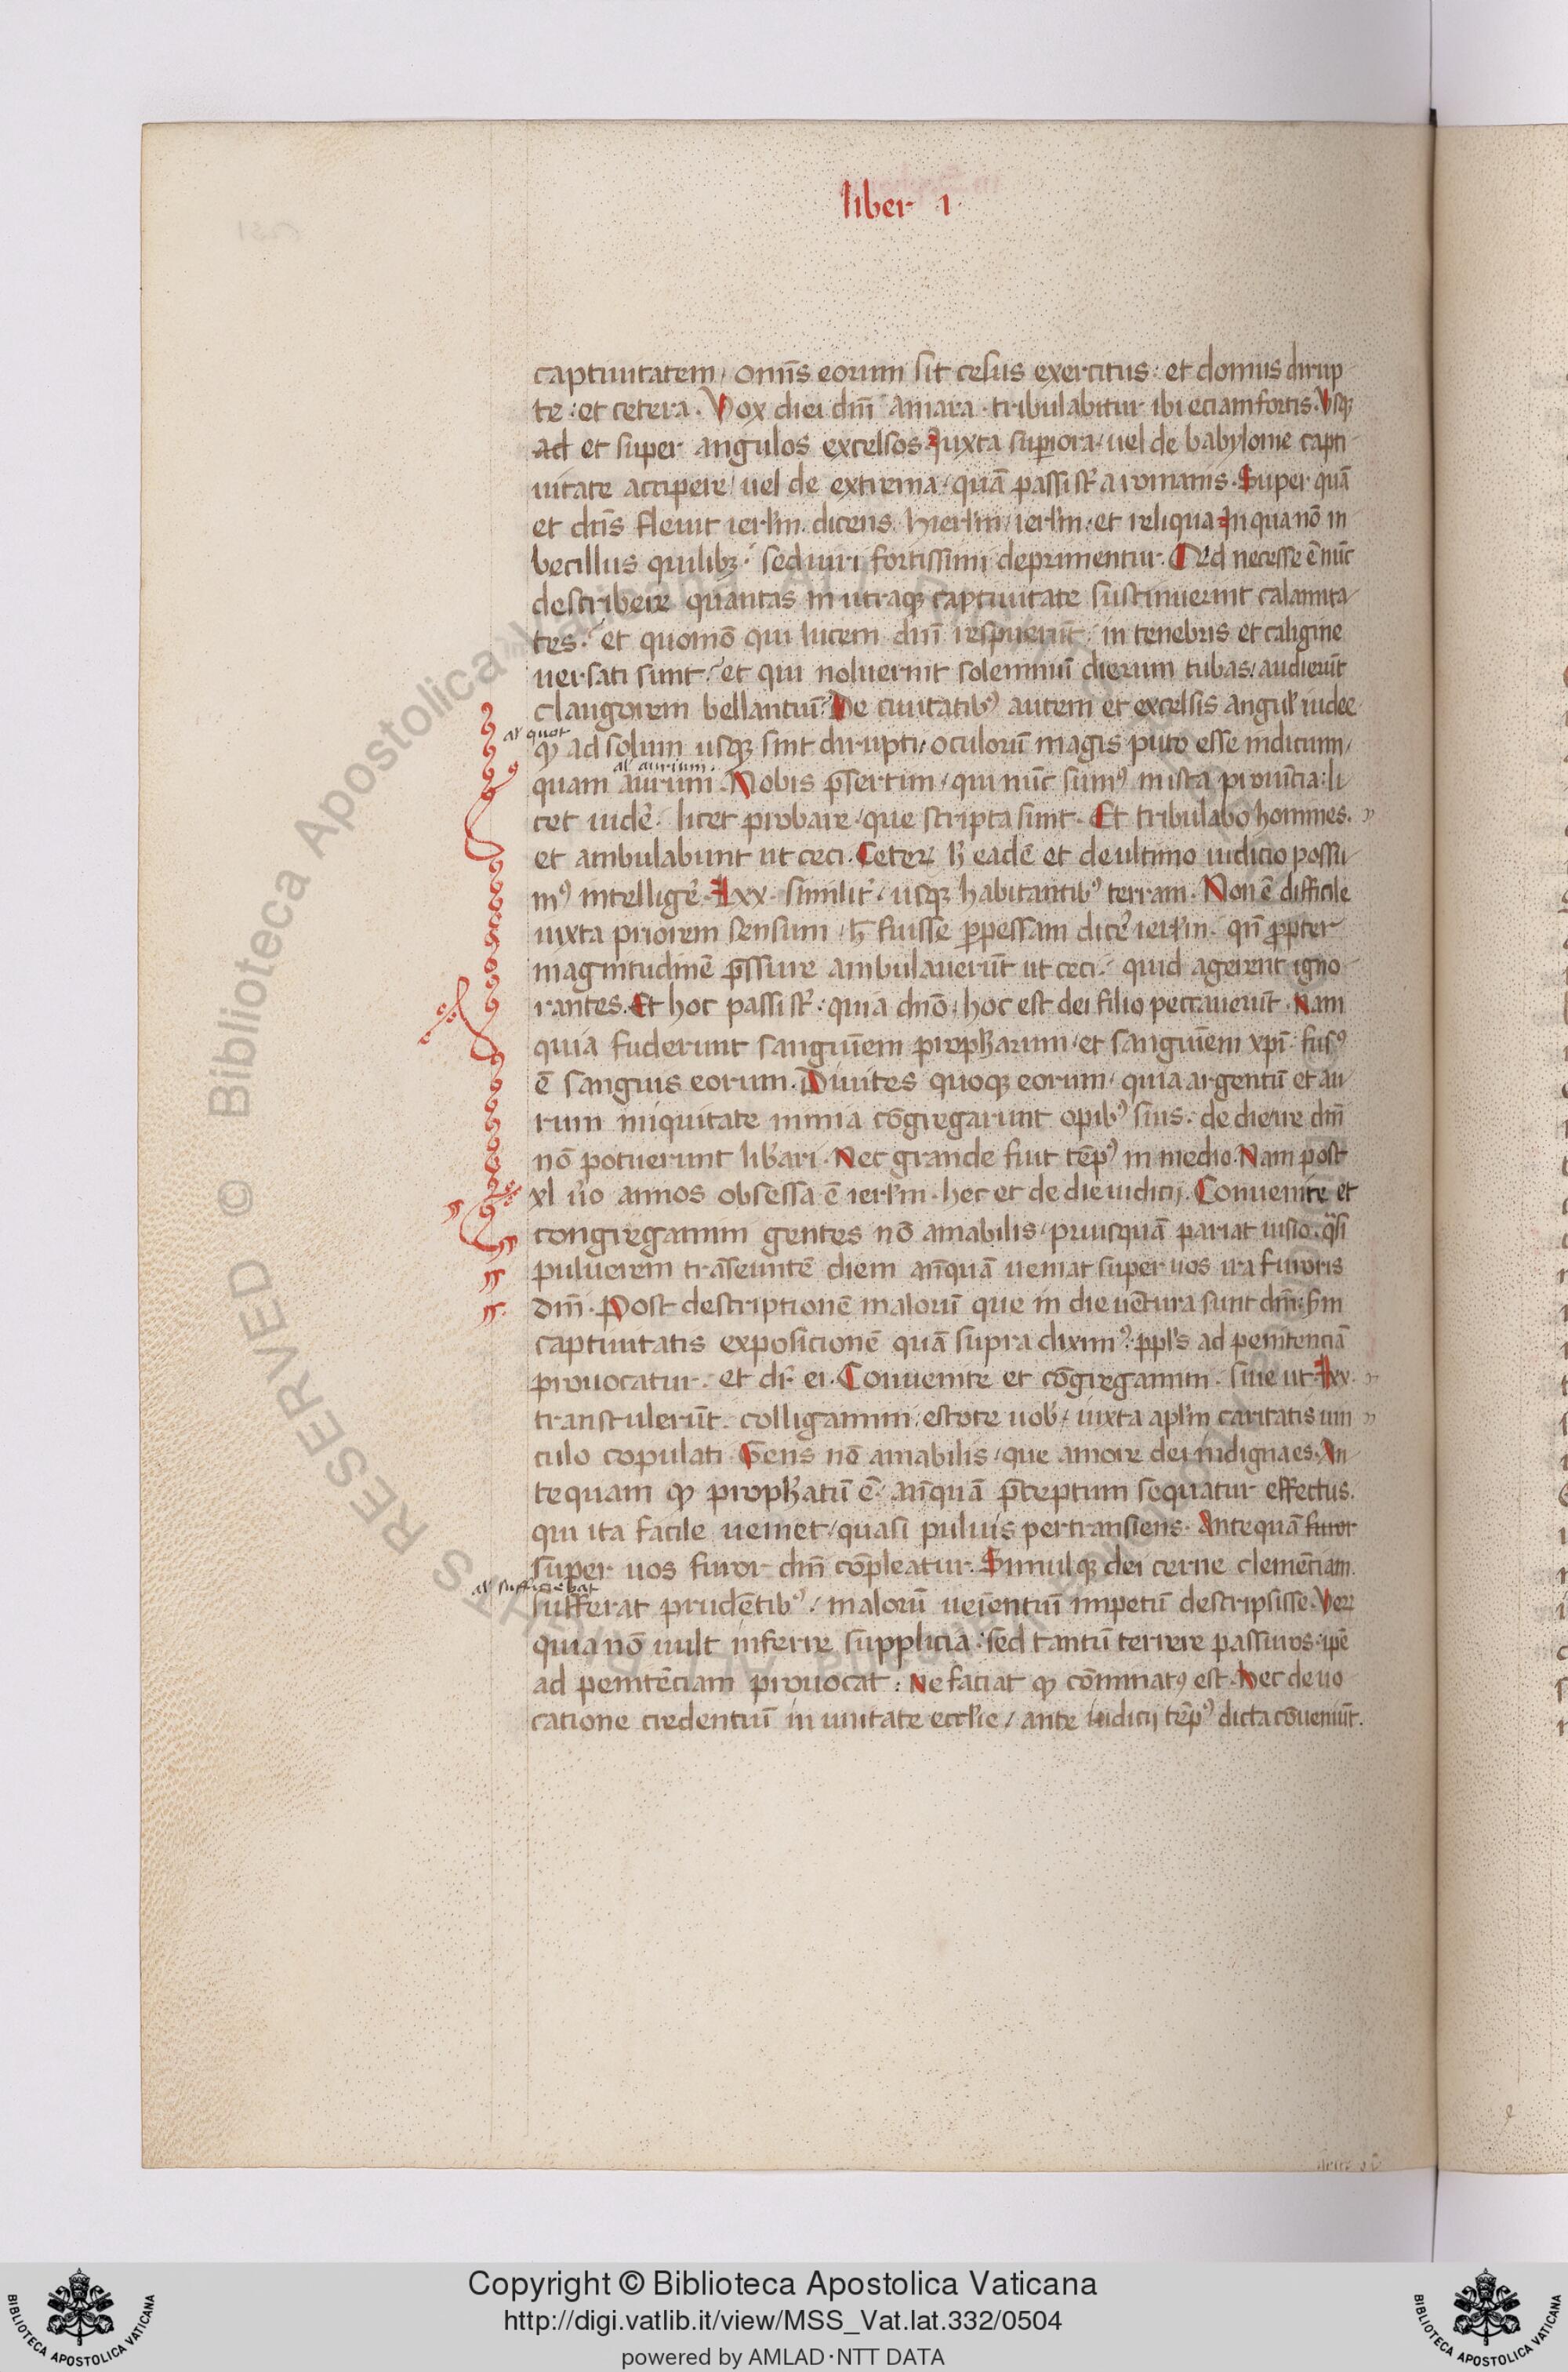 liber 1
captiuitatem / om̄is eorum sit cesus exercitus : et domus dirup
te : et cetera . Vox diei dn̄i amara . tribulabitur ibi eciam fortis . Vsqꝫ
ad et super angulos excelsos . Iuxta superiora / uel de babylonie capti
uitate accipere / uel de extrema / quā passi st̄ a romanis . Super quā
et dn̄s fleuit ierl'm . dicens . hierl'm / ierl'm / et reliqua In qua nō in
becillus quilibꝫ / sed uiri fortissimi deprimentur . necesse ē nūc
describere quantas in utraqꝫ captiuitate sustinuerint calamita
tes / et quomō qui lucem dn̄i respuerūt / in tenebris et caligine
uersati sunt / et qui noluerint solemniū dierum tubas / audierūt
clangorem bellantiū De ciuitatibꝰ autem et excelsis angul' iudee
al' quot
ꝙ ad solum usqꝫ sint dirupti / oculorū magis puto esse indicium /
al' aurium .
quam aurum . Nobis p̄sertim / qui nūc sumꝰ in ista prouincia : li
cet uidē . licet probare / que scripta sunt . Et tribulabo homines .
et ambulabunt ut ceci . Ceteꝝ h̄ eadē et de ultimo iudicio possu
mꝰ intelligē . Lxx . similit' / usqꝫ habitantibꝰ terram . Non ē difficile
iuxta priorem sensum / h̄ fuisse ꝑpessam dicē ierl'm . qn̄ ꝓpter
magnitudinē p̄ssure ambulauerūt ut ceci / quid agerent igno
rantes . Et hoc passi st̄ : quia dn̄o / hoc est dei filio peccauerūt . Nam
quia fuderunt sanguīem proph̄arum / et sanguīem xp̄i / fusꝰ
ē sanguis eorum . Diuites quoqꝫ eorum / quia argentū et au
rum iniquitate nimia cōgregarunt opibꝰ suis . de die ire dn̄i
nō potuerunt lib̄ari . Nec grande fuit tēpꝰ in medio . Nam post
xl uo annos obsessa ē ierl'm . hec et de die iudicij . Conuenite et
congregamini gentes nō amabilis / priusquā pariat iusio . q̄si
puluerem trāseuntē diem an̄quā ueniat super uos ira furoris
dn̄i . Post descriptionē malorū que in die uētura sunt dn̄i / sm
captiuitatis exposicionē quā supra diximꝰ . ppl's ad penitenciā
prouocatur . et dr̄ ei . Conuenite et cōgregamini . siue ut Lxx .
transtulerūt . colligamini / estote uob' / iuxta apl'm caritatis uin
culo copulati . Gens nō amabilis / que amore dei indigna es . An
tequam ꝙ proph̄atū ē / an̄quā p̄ceptum sequatur effectus .
qui ita facile ueniet / quasi puluis pertransiens . Antequā furor
super uos furor dn̄i cōpleatur . Simulqꝫ dei cerne clemētiam .
al' sufficiebat
sufferat prudētibꝰ / malorū ueientiū impetū descripsisse . Veꝝ
quia nō uult inferre supplicia : sed tantū terrere passuros : ipē
ad penitēciam prouocat : Ne faciat ꝙ cōminatꝰ est . Hec de uo
catione credentiū in unitate eccl'ie / ante iudicij tēpꝰ dicta cōueniūt .
© Biblioteca Apostolica Vaticana
Copyright © Biblioteca Apostolica Vaticana
http://digi.vatlib.it/view/MSS_Vat.lat.332/0504
powered by AMLAD·NTT DATA
BIBLIOTECA APOSTOLICA VATICANA
BIBLIOTECA APOSTOLICA VATICANA